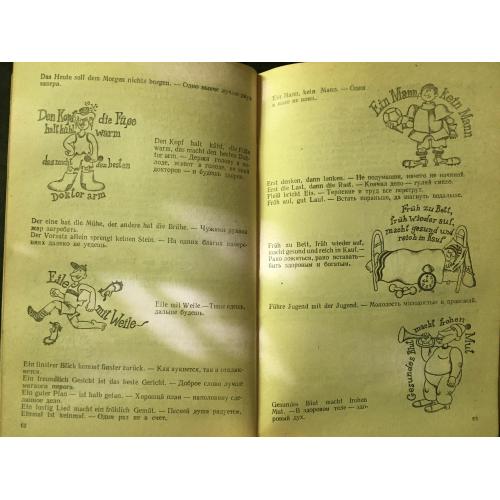 Das Heute soll dem Morgen nichts borgen. — Одно нынче лучше двух
завтра.
Den Kopf
halt kühl,
die Füße
warm
das macht
den besten
Doktor arm
Den Kopf halt kühl, die Füße
warm, das macht den besten Dok-
tor arm. — Держи голову в хо-
лоде, живот в голоде, не знай
докторов — и будешь здоров.
Der eine hat die Mühe, der andere hat die Brühe. — Чужими руками
жар загребать.
Der Vorsatz allein sprengt keinen Stein. — На одних благих намере-
ниях далеко не уедешь.
Eile
mit Weile
Eile mit Weile. — Тише едешь,
дальше будешь.
Ein finstrer Blick kommt finster zurück. — Как аукнется, так и отклик-
нется.
Ein freundlich Gesicht ist das beste Gericht. — Доброе слово лучше
мягкого пирога.
Ein guter Plan — ist halb getan. — Хороший план — наполовину сде-
ланное дело.
Ein lustig Lied macht ein fröhlich Gemüt. — Песней душа радуется.
Einmal ist keinmal. — Один раз не в счет.
62
Ein Mann, kein Mann. — Один
в поле не воин.
Ein Mann,
kein Mann
Erst denken, dann lenken. — Не подумавши, ничего не начинай.
Erst die Last, dann die Rast. — Кончил дело — гуляй смело.
Fleiß bricht Eis. — Терпение и труд все перетрут.
Früh auf, gut Lauf. — Встать пораньше, да шагнуть подальше.
Früh zu Bett,
früh wieder auf,
macht gesund und
reich in Kauf.
Früh zu Bett, früh wieder auf,
macht gesund und reich in Kauf. —
Рано ложиться, рано вставать —
быть здоровым и богатым.
Führe Jugend mit der Jugend. — Молодость молодостью и правится.
Gesundes Blut
macht frohen
Mut
Gesundes Blut macht frohen
Mut. — В здоровом теле — здо-
ровый дух.
63